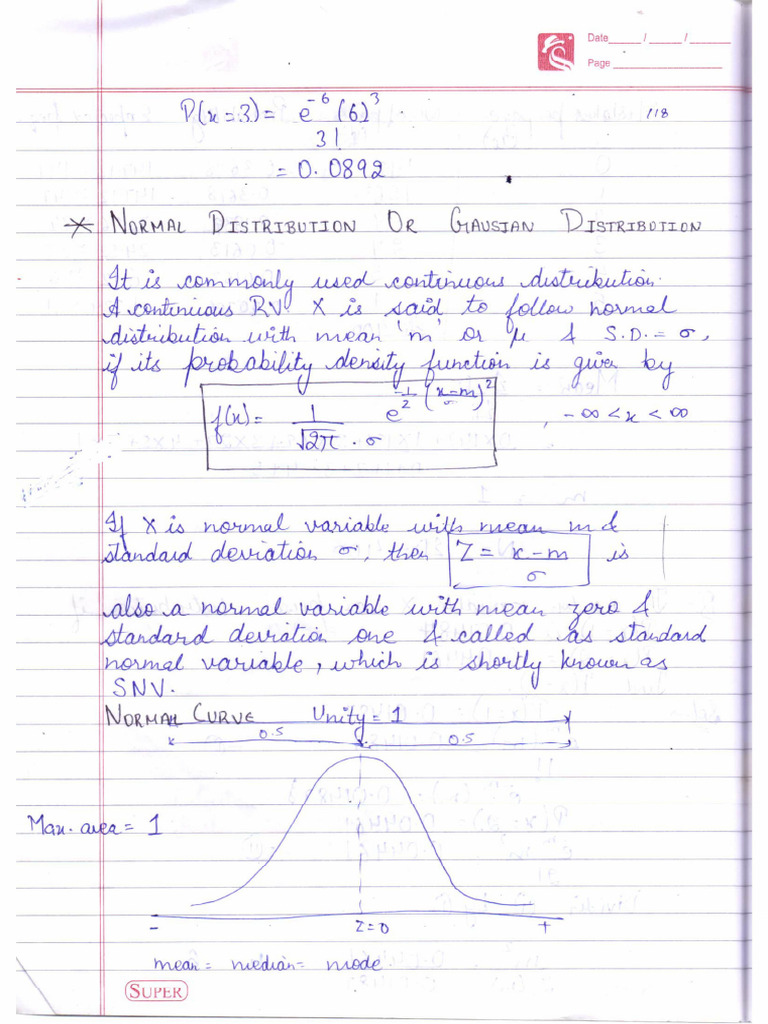 Date_____ / _____ / ______
Page ________________
118
P(x=3) = e^-6 (6)^3
3!
= 0.0892
* NORMAL DISTRIBUTION OR GAUSIAN DISTRIBUTION
It is commonly used continuous distribution.
A continuous RV. X is said to follow normal
distribution with mean 'm' or μ & S.D. = σ,
if its probability density function is given by
f(x) = 1/(√2π · σ) e^-1/2 ((x-m)/σ)^2 , -∞ < x < ∞
If X is normal variable with mean m &
standard deviation σ, then Z = (x-m)/σ is
also a normal variable with mean zero &
standard deviation one & called as standard
normal variable, which is shortly known as
SNV.
NORMAL CURVE Unity = 1
0.5 0.5
Max. area = 1
- Z=0 +
mean = median = mode
SUPER